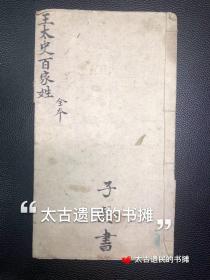 王太史百家姓
全本
子
書
太古遗民的书摊
太古遗民的书摊